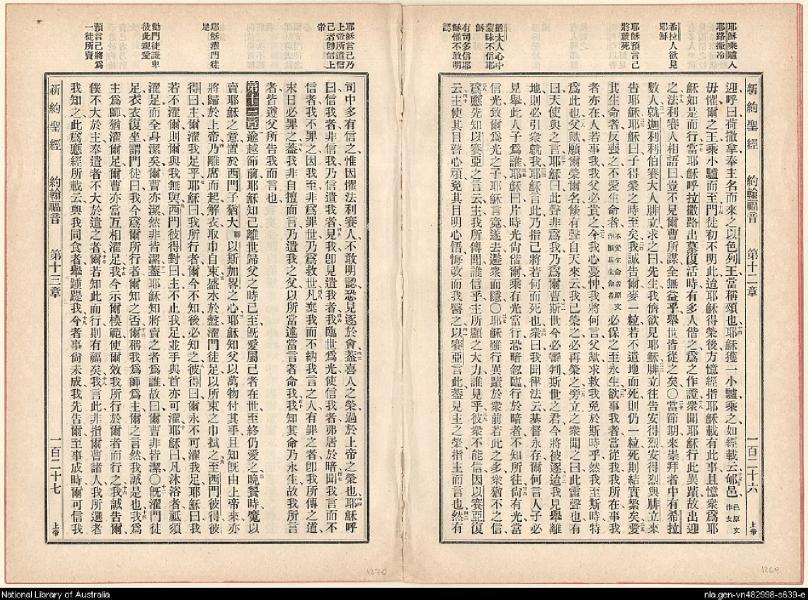 耶穌乘驢入
耶路撒冷
希拉人欲見
耶穌
耶穌預言己
將舉死
猶太人心中
蒙昧不信耶
穌
有司多信耶
穌惟不敢明
認
迎呼曰荷撒拿奉主名而來之以色列王當稱頌也耶穌獲一小驢乘之如經載云郇邑
毋懼爾之王乘小驢而至門徒初不明此迨耶穌得榮後方憶經指耶穌載有此事且憶衆爲耶
穌如是而行當耶穌呼拉撒路出墓復活時有多人偕之爲之作證衆聞耶穌行此異蹟故出迎
之法利賽人相語曰豈不見爾曹所謀全無益乎舉世皆從之矣○當節期來崇拜者中有希拉
數人就迦利利伯賽大人腓立求之曰先生我儕欲見耶穌腓立往告安得烈安得烈與腓立來
告耶穌耶穌曰人子得榮之時至矣我誠告爾麥一粒若不遺地而死則仍一粒死則結實繁矣愛
其生命者反喪之不愛生命者必保之至永生欲事我者當從我我所在事我
者亦在人若事我我父必貴之今我心憂忡我將何言父歟求救我免於斯時乎然我至斯時特
爲此也父歟願爾榮爾名倏有聲自天來云我已榮之必再榮之旁立之衆聞之曰此雷聲也有
曰天使與之言耶穌曰此聲非爲我乃爲爾曹斯世今必審判斯世之君今將被逐逾我見舉離
地則必引衆就我耶穌言此乃指己將若何而死也衆曰我聞律法云基督永存爾何言人子必
見舉此人子爲誰耶穌曰片時光尚偕爾乘有光當行恐暗忽臨行於暗者不知所往尚有光當
信光致爾爲光之子耶穌言竟遂去避衆而隱○耶穌雖行異蹟於衆前若此之多衆猶不之信
爲應先知以賽亞之言云主我所傳聞誰信乎主所顯之大力誰見乎彼衆不能信因以賽亞復
云主使其目瞽心頑免其目明心悟悔改而我醫之以賽亞言此蓋見主之榮指主而言也然有
新約聖經 約翰福音 第十二章 一百二十六 上帝
耶穌言己乃
上帝所遣信
己者卽信上
帝
耶穌濯門徒
足
勸門徒謙卑
彼此親愛
預言己將爲
一徒所賣
司中多有信之惟因懼法利賽人不敢明認恐見逐於會蓋喜人之榮過於上帝之榮也耶穌呼
曰信我者非信我乃信遣我者見我卽見遣我者我臨世爲光使信我者弗居於暗聞我言而不
信者我不罪之因我至非爲罪世乃爲救世凡棄我而不納我言之人有罪之者卽我所傳之道
末日必罪之蓋我非自擅而言乃遣我之父以所當達當言者命我我知其命乃永生故我所言
者皆遵父所告我而言也
第十三章逾越節前耶穌知己離世歸父之時已至旣愛屬己者在世至終仍愛之晩餐時魔以
賣耶穌之意置於西門子猶大以斯加畧之心耶穌知父以萬物付其手且知旣由上帝來亦
將歸於上帝乃離席而起解衣取巾自束盛水於盤濯門徒足以所束之巾拭之至西門彼得彼
得曰主爾濯我足乎耶穌曰我所行者爾今不知後必知之彼得曰爾永不可濯我足耶穌曰我
若不濯爾則爾與我無與西門彼得對曰主不止我足並手與首亦可濯耶穌曰凡沐浴者祗須
濯足而全身潔矣爾曹亦潔然非皆潔蓋耶穌知將賣之者爲誰故曰爾曹非皆潔○旣濯門徒
足衣衣復坐謂門徒曰我今爲爾所行者爾知之否爾稱我爲師爲主爾之言然我誠是也我爲
主爲師猶濯爾足爾曹亦當互相濯足我今示爾模範使爾效我所行於爾者而行之我誠告爾
僕不大於主奉遣者不大於遣之者爾若知此而行則有福矣我言此非指爾曹諸人我所選者
我知之此爲應經所載云與我同食者舉踵踢我今者事尚未成我先告爾至事成時爾可信我
新約聖經 約翰福音 第十三章 一百二十七 上帝
1270
1269
National Library of Australia
nla.gen-vn482998-s639-e